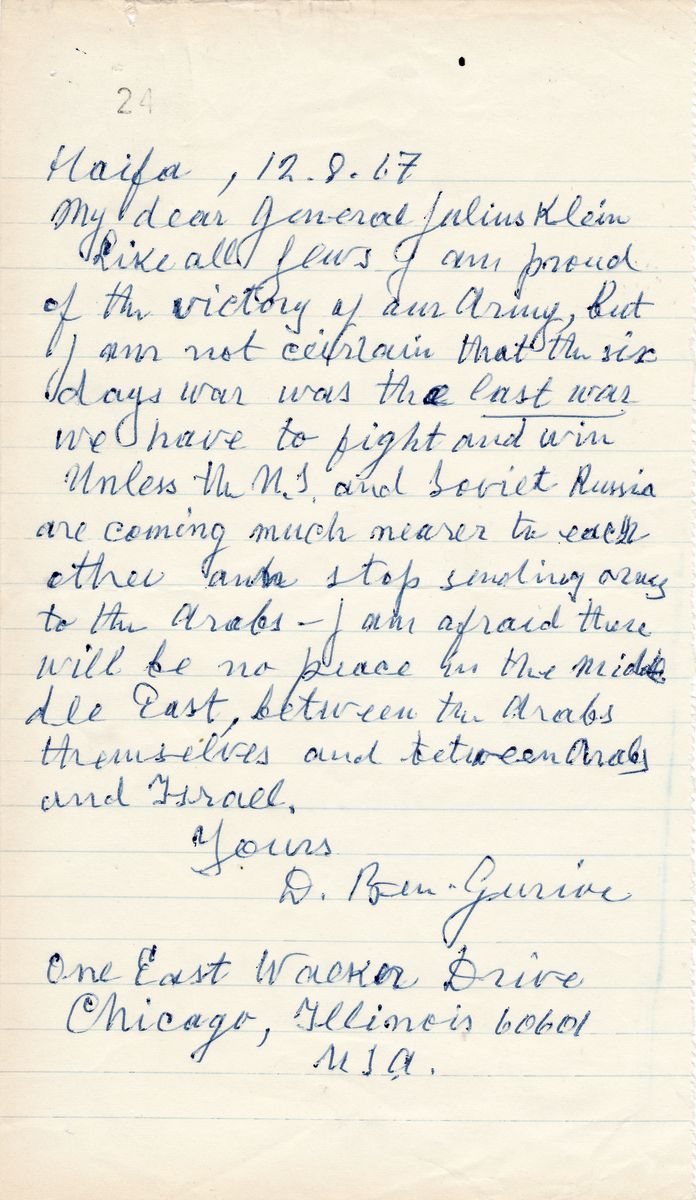 24
Haifa, 12.8.67
My dear General Julius Klein
Like all Jews I am proud
of the victory of our Army, but
I am not certain that the six
days war was the last war
we have to fight and win
Unless the U.S. and Soviet Russia
are coming much nearer to each
other and stop sending arms
to the Arabs – I am afraid there
will be no peace in the midd
dle East, between the Arabs
themselves and between Arabs
and Israel.
Yours
D. Ben-Gurion
One East Wacker Drive
Chicago, Illinois 60601
USA.